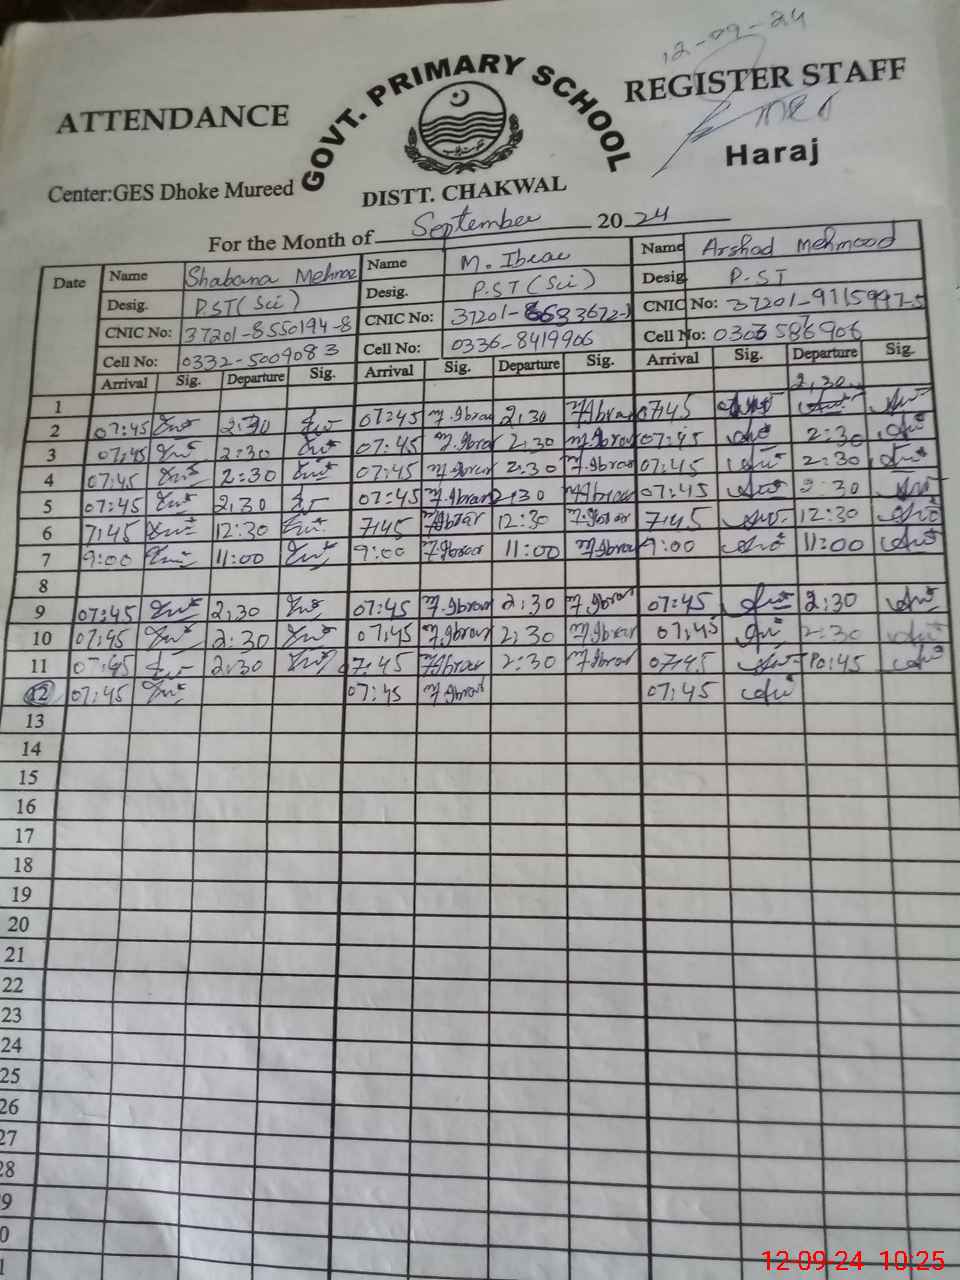 12-09-24
ATTENDANCE GOVT. PRIMARY SCHOOL REGISTER STAFF
Haraj
Center:GES Dhoke Mureed
DISTT. CHAKWAL
For the Month of September 2024
Date Name Shabana Mehnaz Name M. Ibrar Name Arshad Mehmood
Desig. P.ST(Sci) Desig. P.ST(Sci) Desig. P.ST
CNIC No: 37201-8550194-8 CNIC No: 37201- CNIC No: 37201-9115997-5
Cell No: 0332-5009083 Cell No: 0336-8419906 Cell No:
Arrival Sig. Departure Sig. Arrival Sig. Departure Sig. Arrival Sig. Departure Sig.
1
2 07:45 2:30 07:45 M.Ibrar 2:30 M.Ibrar 07:45 2,30
3 07:45 2:30 07:45 M.Ibrar 2:30 M.Ibrar 07:45 2:30
4 07:45 2:30 07:45 M.Ibrar 2:30 M.Ibrar 07:45 2:30
5 07:45 2,30 07:45 M.Ibrar 2:30 M.Ibrar 07:45 2:30
6 7:45 12:30 7:45 M.Ibrar 12:30 M.Ibrar 7:45 12:30
7 9:00 11:00 9:00 M.Ibrar 11:00 M.Ibrar 9:00 11:00
8
9 07:45 2,30 07:45 M.Ibrar 2:30 M.Ibrar 07:45 2:30
10 07:45 2:30 07:45 M.Ibrar 2:30 M.Ibrar 07:45 2:30
11 07:45 2:30 07:45 M.Ibrar 2:30 M.Ibrar 07:45
12 07:45 07:45 M.Ibrar 07:45
13
14
15
16
17
18
19
20
21
22
23
24
25
26
27
28
9
0
1
12-09-24 10:25